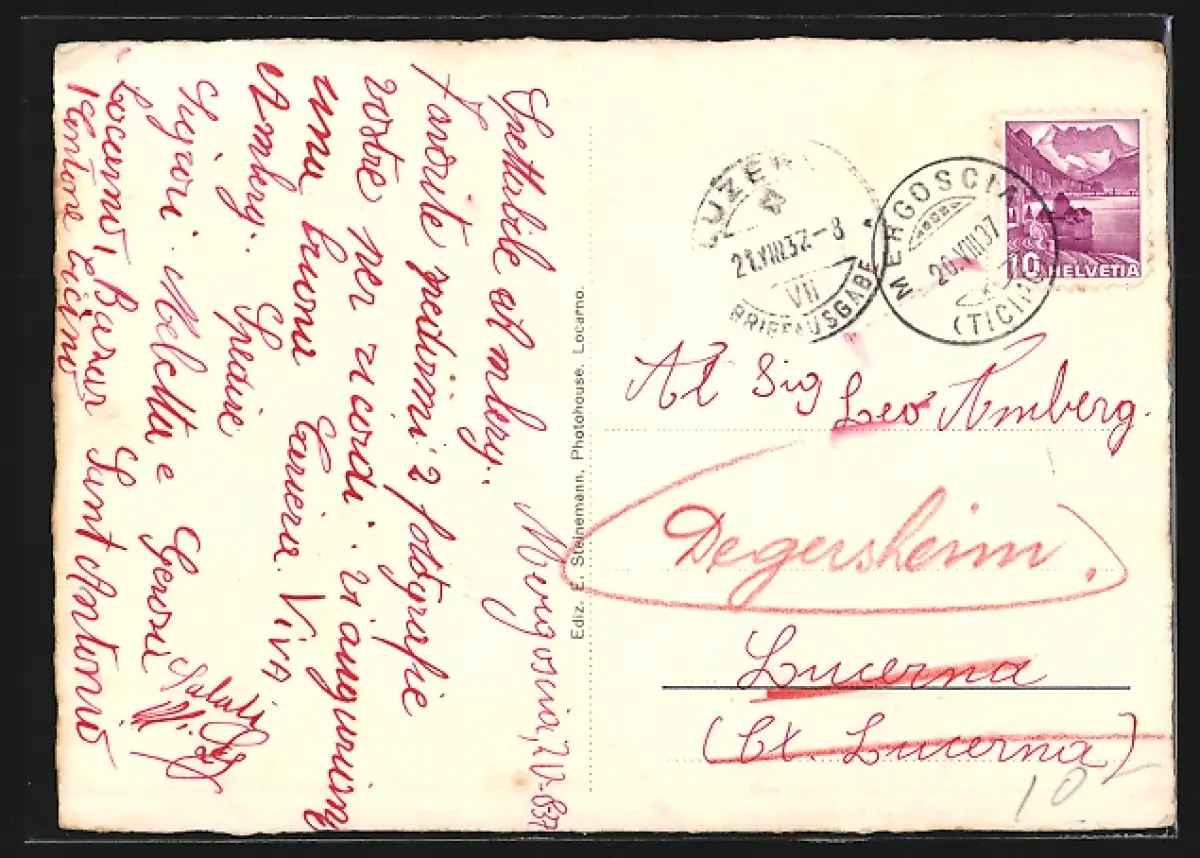 Mergoscia, 20-8-37
Spettabile Amberg.
Favorite spedirmi 2 fotografie
vostre per ricordi. vi auguriam
una buona Carriera. Viva
Amberg. Spedire
Signori. Moletta e Gerosa
Locarno, Bazar Sant Antonio
Kantone Ticino
Saluti
Ediz. E. Steinemann, Photohouse, Locarno.
LUZERN
21.VIII.37.-8
VII
BRIEFAUSGABE
MERGOSCIA
20.VIII.37
(TICINO)
10 HELVETIA
Al Sig
Leo Amberg.
Degersheim.
Lucerna
(Ct. Lucerna)
10